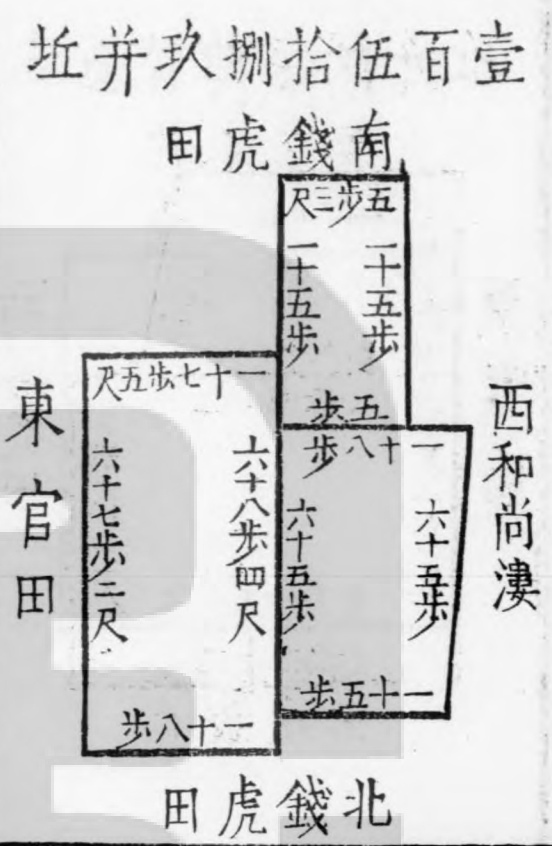 壹百伍拾捌玖并坵
南錢虎田
五步三尺
一十五步
一十五步
五步
西和尚漊
一十八步
六十五步
六十五步
一十五步
一十七步五尺
六十八步四尺
六十七步二尺
一十八步
東官田
北錢虎田